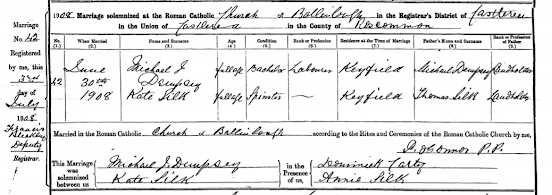 1908. Marriage solemnized at the Roman Catholic Church of Ballinlough in the Registrar's District of Castlerea
in the Union of Castlerea in the County of Roscommon
Marriage No. 42
Registered by me, this
3rd
day of
July
1908
Francis
Deputy
Registrar.
No. When Married Name and Surname Age Condition Rank or Profession Residence at the Time of Marriage Father's Name and Surname Rank or Profession of Father
(1.) (2.) (3.) (4.) (5.) (6.) (7.) (8.) (9.)
42 June Michael J Dempsey full age Bachelor Labourer Keyfield Michael Dempsey Landholder
30th
1908 Kate Silk full age Spinster — Keyfield Thomas Silk Landholder
Married in the Roman Catholic Church of Ballinlough according to the Rites and Ceremonies of the Roman Catholic Church by me,
P.P.
This Marriage was solemnized between us Michael J. Dempsey
Kate Silk
in the Presence of us Dominick Carty
Annie Silk